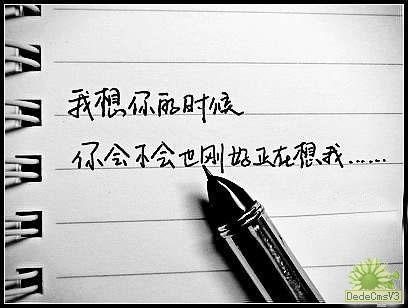 我想你的时候
你会不会也刚好正在想我……
DedeCmsV3